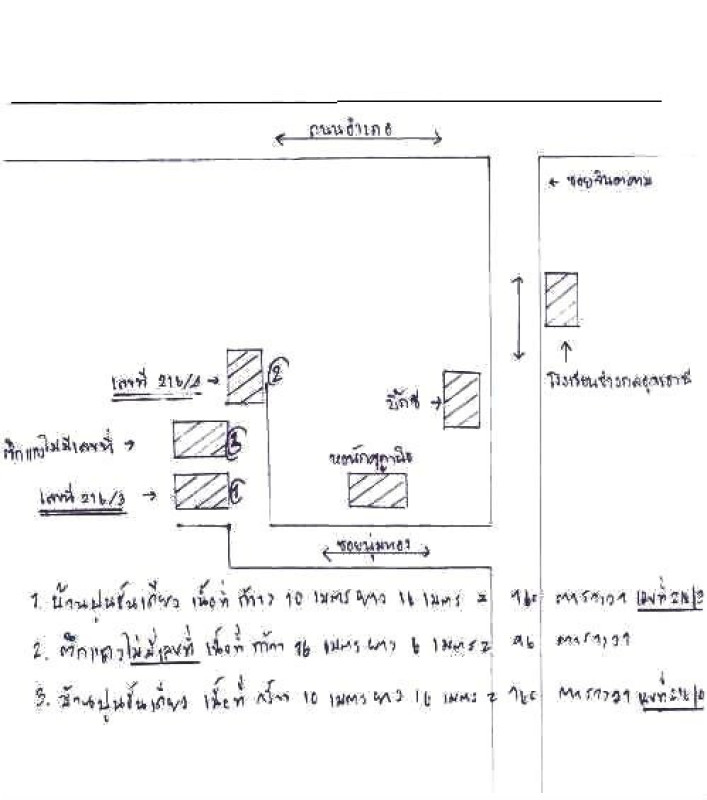 ถนนอำเภอ
← ซอยจินดาคาม
เลขที่ 216/4 →
②
บิ๊กซี →
ตึกแถวไม่มีเลขที่ →
③
หอพัก
เลขที่ 216/3 →
①
ซอยพุ่มทอง
1. บ้านปูนชั้นเดียว เนื้อที่ กว้าง 10 เมตร ยาว 16 เมตร = 160 ตารางวา เลขที่ 216/3
2. ตึกแถวไม่มีเลขที่ เนื้อที่ กว้าง 16 เมตร ยาว 6 เมตร = 96 ตารางวา
3. บ้านปูนชั้นเดียว เนื้อที่ กว้าง 10 เมตร ยาว 16 เมตร = 160 ตารางวา เลขที่